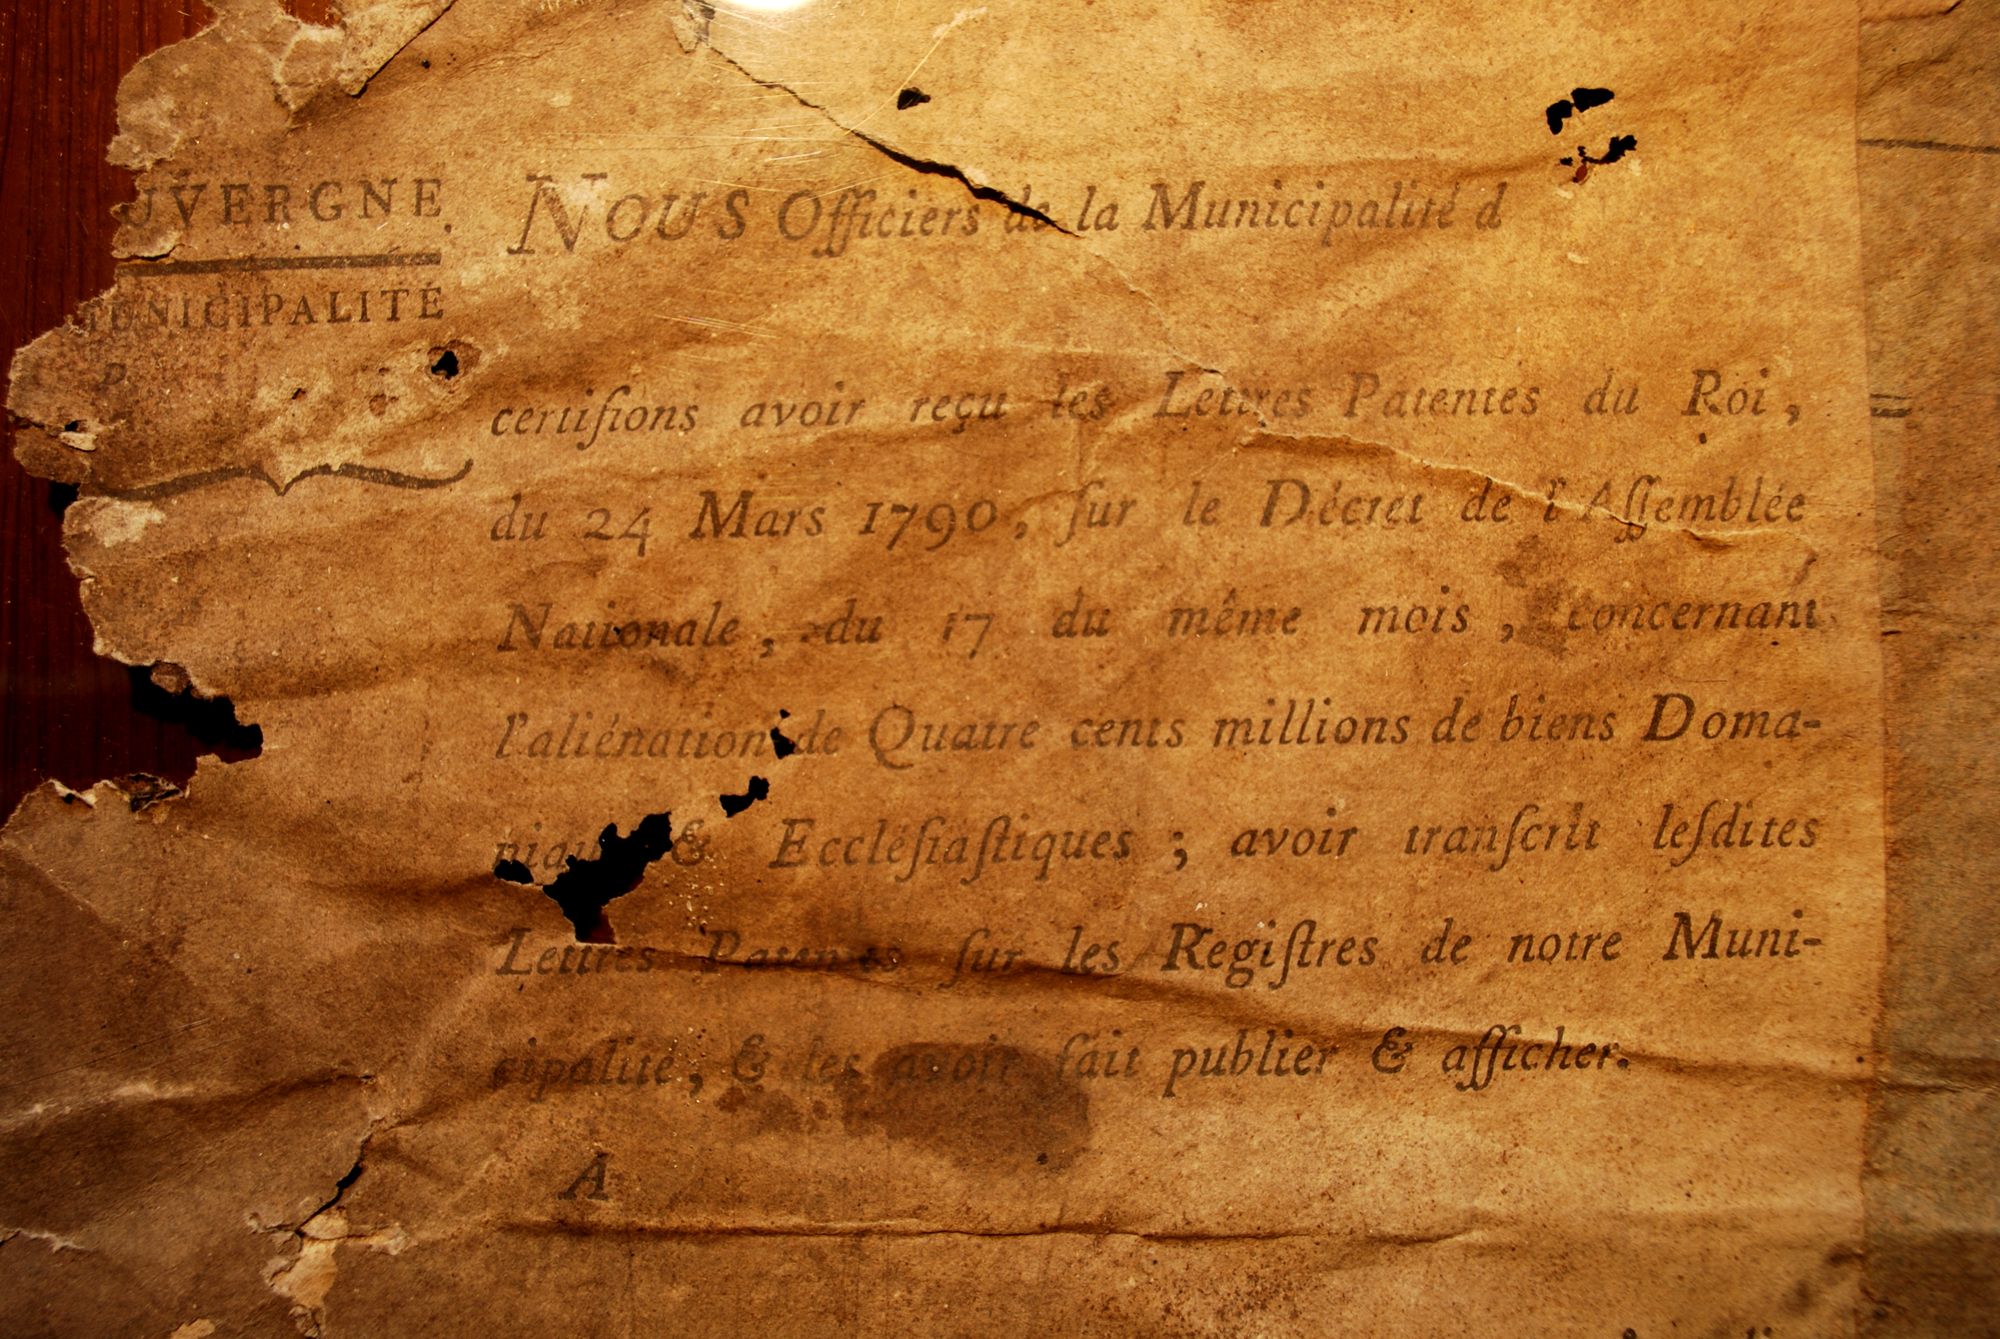 UVERGNE.
MUNICIPALITÉ
D
NOUS Officiers de la Municipalité d
certifions avoir reçu les Lettres Patentes du Roi,
du 24 Mars 1790, ſur le Décret de l'Aſſemblée
Nationale, du 17 du même mois, concernant
l'aliénation de Quatre cents millions de biens Doma-
niau & Eccléſiaſtiques ; avoir tranſcrit leſdites
Lettres Patentes ſur les Regiſtres de notre Muni-
cipalité, & les avoir fait publier & afficher.
A